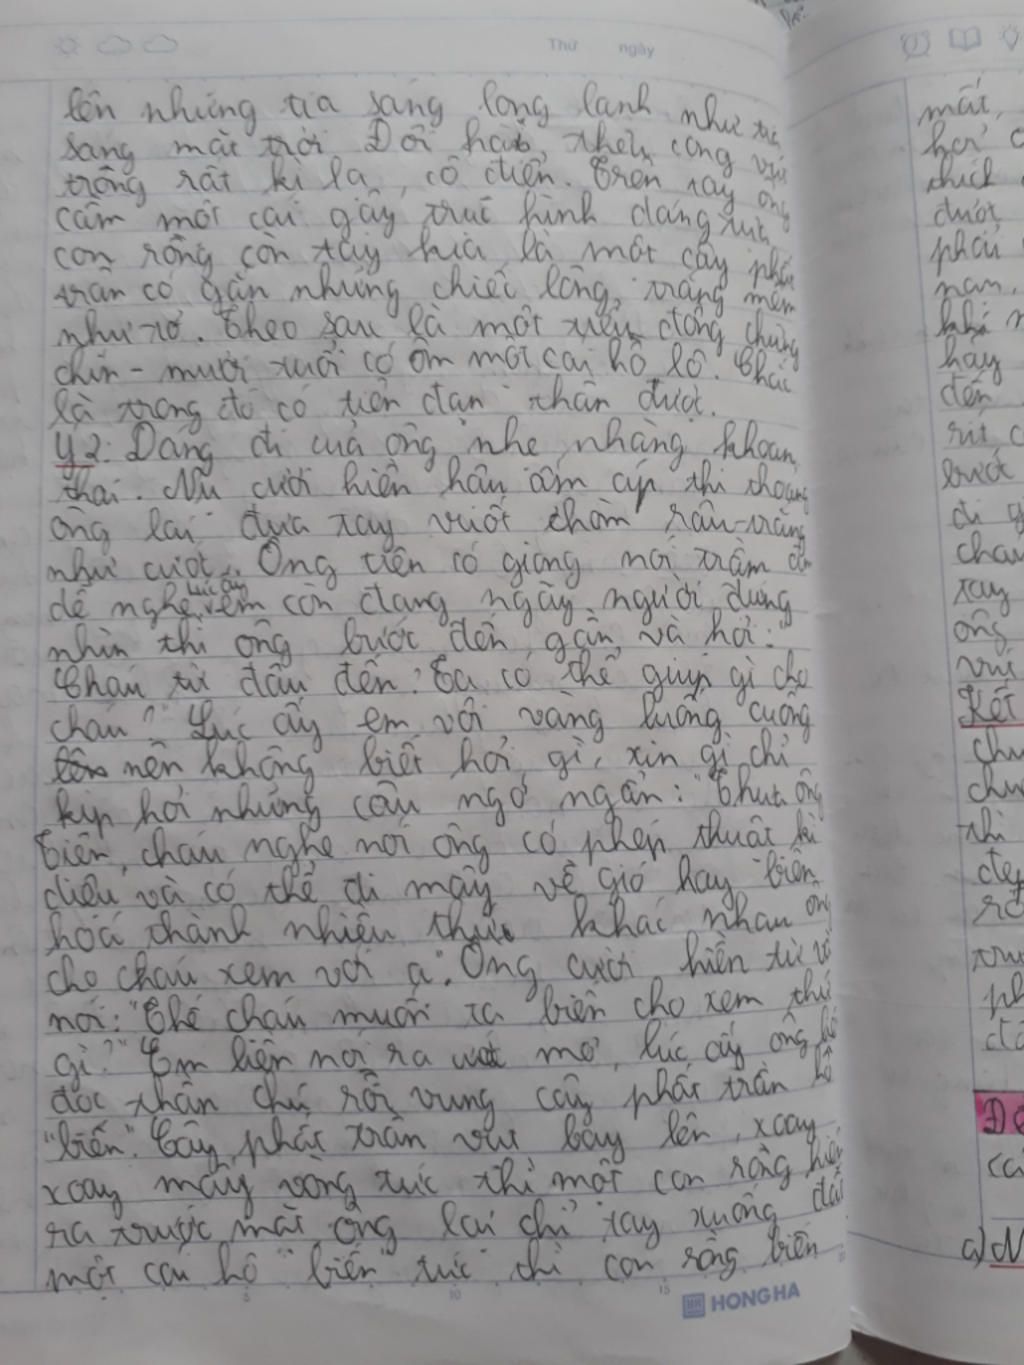 Thứ ngày
lên những tia sáng long lanh như tia
sáng mặt trời Đôi hài thêu cong vút
trông rất kì lạ, cổ điển. Trên tay ông
cầm một cái gậy trúc hình dáng tựa
con rồng còn tay kia là một cây phất
trần có gắn những chiếc lông, trắng mềm
như tơ. Theo sau là một tiểu đồng chừng
chín - mười tuổi có ôm một cái hồ lô. Chắc
là trong đó có tiên đan thần dược.
Y2: Dáng đi của ông nhẹ nhàng khoan
thai. Nụ cười hiền hậu ấm áp thi thoảng
ông lại đưa tay vuốt chòm râu trắng
như cước. Ông tiên có giọng nói trầm ấm
dễ nghe. Lúc ấy em còn đang ngây người đứng
nhìn thì ông bước đến gần và hỏi:
"Cháu từ đâu đến? Ta có thể giúp gì cho
cháu?" Lúc ấy em vội vàng luống cuống
nên không biết hỏi gì, xin gì chỉ
kịp hỏi những câu ngớ ngẩn: "Thưa ông
Tiên, cháu nghe nói ông có phép thuật kì
diệu và có thể đi mây về gió hay biến
hoá thành nhiều thức khác nhau ông
cho cháu xem với ạ". Ông cười hiền từ và
nói: "Thế cháu muốn ta biến cho xem thứ
gì?" Em liền nói ra ước mơ, lúc ấy ông
đọc thần chú rồi vung cây phất trần hô
"biến". Cây phất trần vút bay lên, xoay
xoay mấy vòng tức thì một con rồng hiện
ra trước mắt ông lại chỉ tay xuống đất
một cái hô "biến" tức thì con rồng biến
HONG HA
mắt,
hơi
thích
được
phải
nam,
khi
hay
đến
rít
bước
đi
cháu
tay
ông
với
Kết
thì